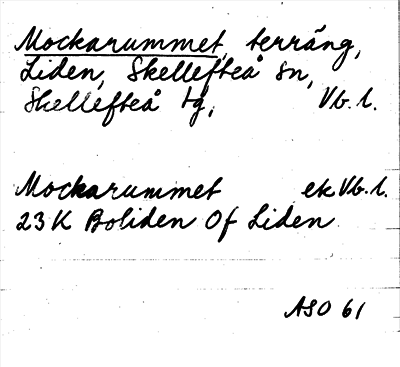 Mockarummet, terräng,
Liden, Skellefteå sn,
Skellefteå tg, Vb.l.
Mockarummet ekVb.l.
23K Boliden Of Liden
ASO 61